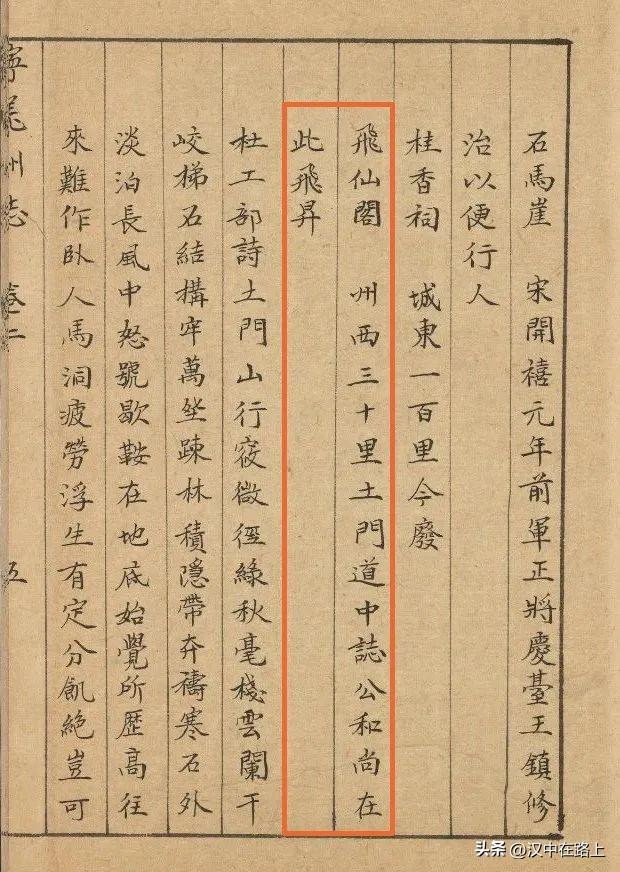 石馬崖　宋開禧元年前軍正將慶臺王鎮修
治以便行人
桂香祠　城東一百里今廢
飛仙閣　州西三十里土門道中誌公和尚在
此飛昇
杜工部詩土門山行窄微徑緣秋毫棧雲闌干
峻梯石結搆牢萬壑疎林積隱帶奔濤寒石外
淡泊長風中怒號歇鞍在地底始覺所歷高往
來雜作臥人馬洞疲勞浮生有定分飢絶豈可
寧羌州志　卷二　五
头条 @汉中在路上